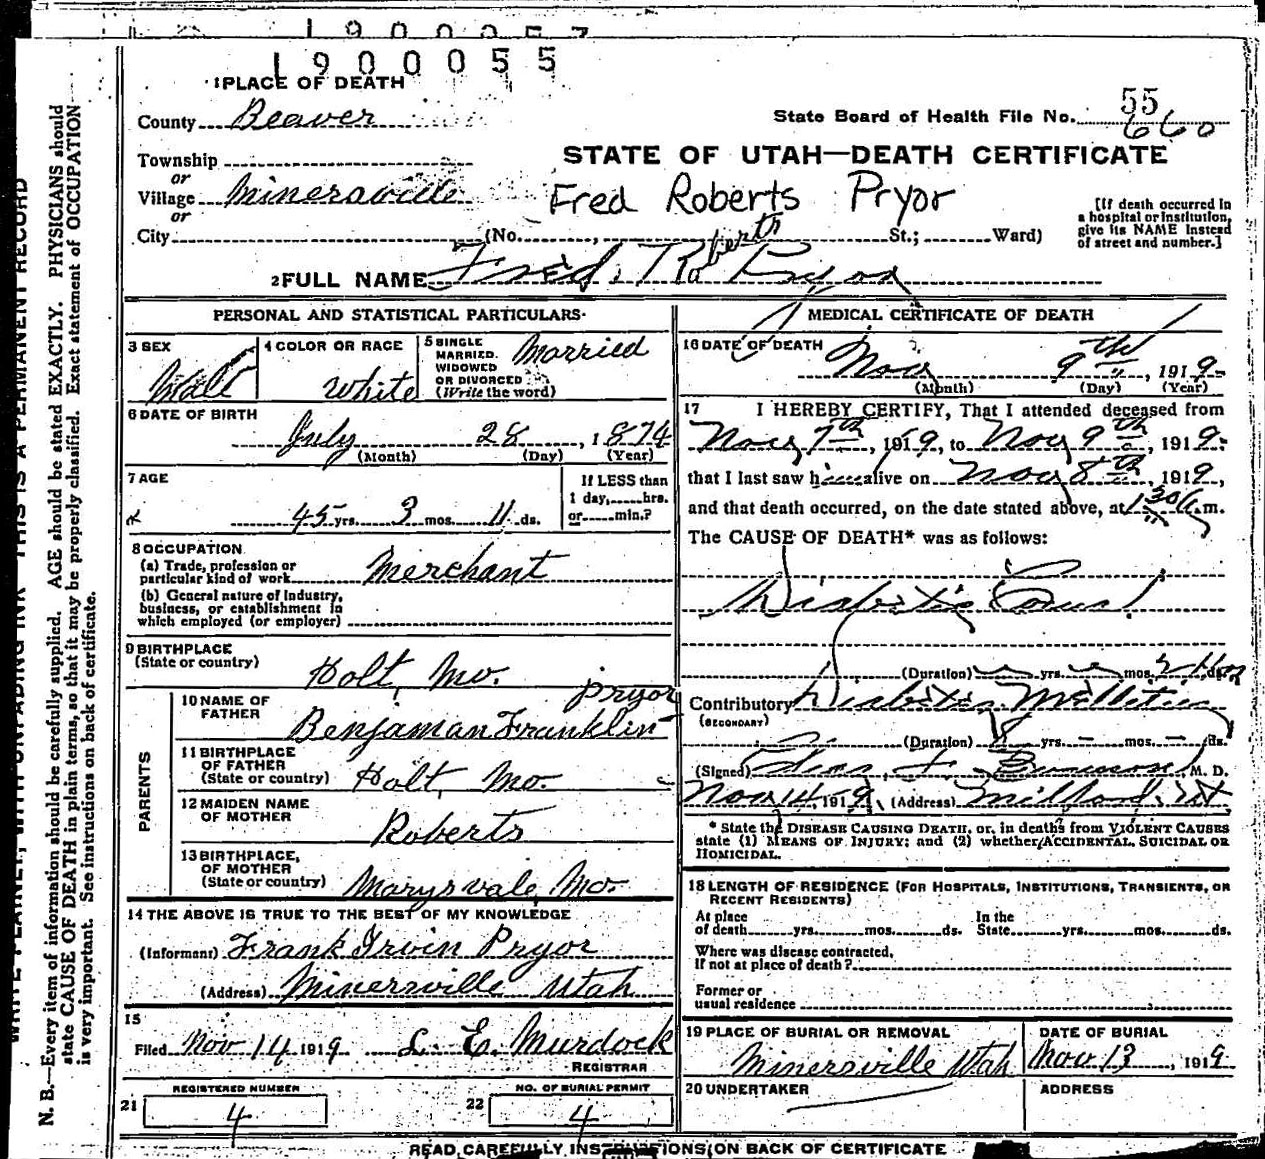 1900057
1900055
1 PLACE OF DEATH
County Beaver
State Board of Health File No. 55
660
Township
or
Village Minersville
or
City
STATE OF UTAH—DEATH CERTIFICATE
Fred Roberts Pryor
[If death occurred in a hospital or institution, give its NAME instead of street and number.]
(No. , St.; Ward)
2 FULL NAME Fred. Roberts Pryor
PERSONAL AND STATISTICAL PARTICULARS
3 SEX Male
4 COLOR OR RACE White
5 SINGLE MARRIED. WIDOWED OR DIVORCED (Write the word) Married
6 DATE OF BIRTH
July 28, 1874
(Month) (Day) (Year)
7 AGE
45 yrs. 3 mos. 11 ds.
If LESS than 1 day, hrs. or min.?
8 OCCUPATION
(a) Trade, profession or particular kind of work Merchant
(b) General nature of Industry, business, or establishment in which employed (or employer)
9 BIRTHPLACE
(State or country) Holt, Mo.
PARENTS
10 NAME OF FATHER Benjaman Franklin Pryor
11 BIRTHPLACE OF FATHER (State or country) Holt, Mo.
12 MAIDEN NAME OF MOTHER Roberts
13 BIRTHPLACE, OF MOTHER (State or country) Marysvale, Mo.
14 THE ABOVE IS TRUE TO THE BEST OF MY KNOWLEDGE
(Informant) Frank Irvin Pryor
(Address) Minersville Utah
15
Filed Nov 14 1919 L. E. Murdock
REGISTRAR
REGISTERED NUMBER
21 4
NO. OF BURIAL PERMIT
22 4
MEDICAL CERTIFICATE OF DEATH
16 DATE OF DEATH
Nov 9th, 1919
(Month) (Day) (Year)
17 I HEREBY CERTIFY, That I attended deceased from
Nov 7th, 1919, to Nov 9th, 1919
that I last saw him alive on Nov 8th, 1919,
and that death occurred, on the date stated above, at 1 30 A. m.
The CAUSE OF DEATH* was as follows:
Diabetic Coma
(Duration) yrs. mos. ds.
Contributory Diabetis Mellitus
(SECONDARY)
(Duration) yrs. — mos. — ds.
(Signed) M. D.
Nov 14 1919, (Address) Milford, Ut
* State the DISEASE CAUSING DEATH, or, in deaths from VIOLENT CAUSES
state (1) MEANS OF INJURY; and (2) whether ACCIDENTAL, SUICIDAL OR
HOMICIDAL.
18 LENGTH OF RESIDENCE (FOR HOSPITALS, INSTITUTIONS, TRANSIENTS, OR
RECENT RESIDENTS)
At place of death yrs. mos. ds. In the State yrs. mos. ds.
Where was disease contracted,
If not at place of death?
Former or
usual residence
19 PLACE OF BURIAL OR REMOVAL
Minersville Utah
DATE OF BURIAL
Nov 13, 1919
20 UNDERTAKER
ADDRESS
READ CAREFULLY INSTRUCTIONS ON BACK OF CERTIFICATE
WRITE PLAINLY, WITH UNFADING INK—THIS IS A PERMANENT RECORD
N. B.—Every item of information should be carefully supplied. AGE should be stated EXACTLY. PHYSICIANS should
state CAUSE OF DEATH in plain terms, so that it may be properly classified. Exact statement of OCCUPATION
is very important. See instructions on back of certificate.